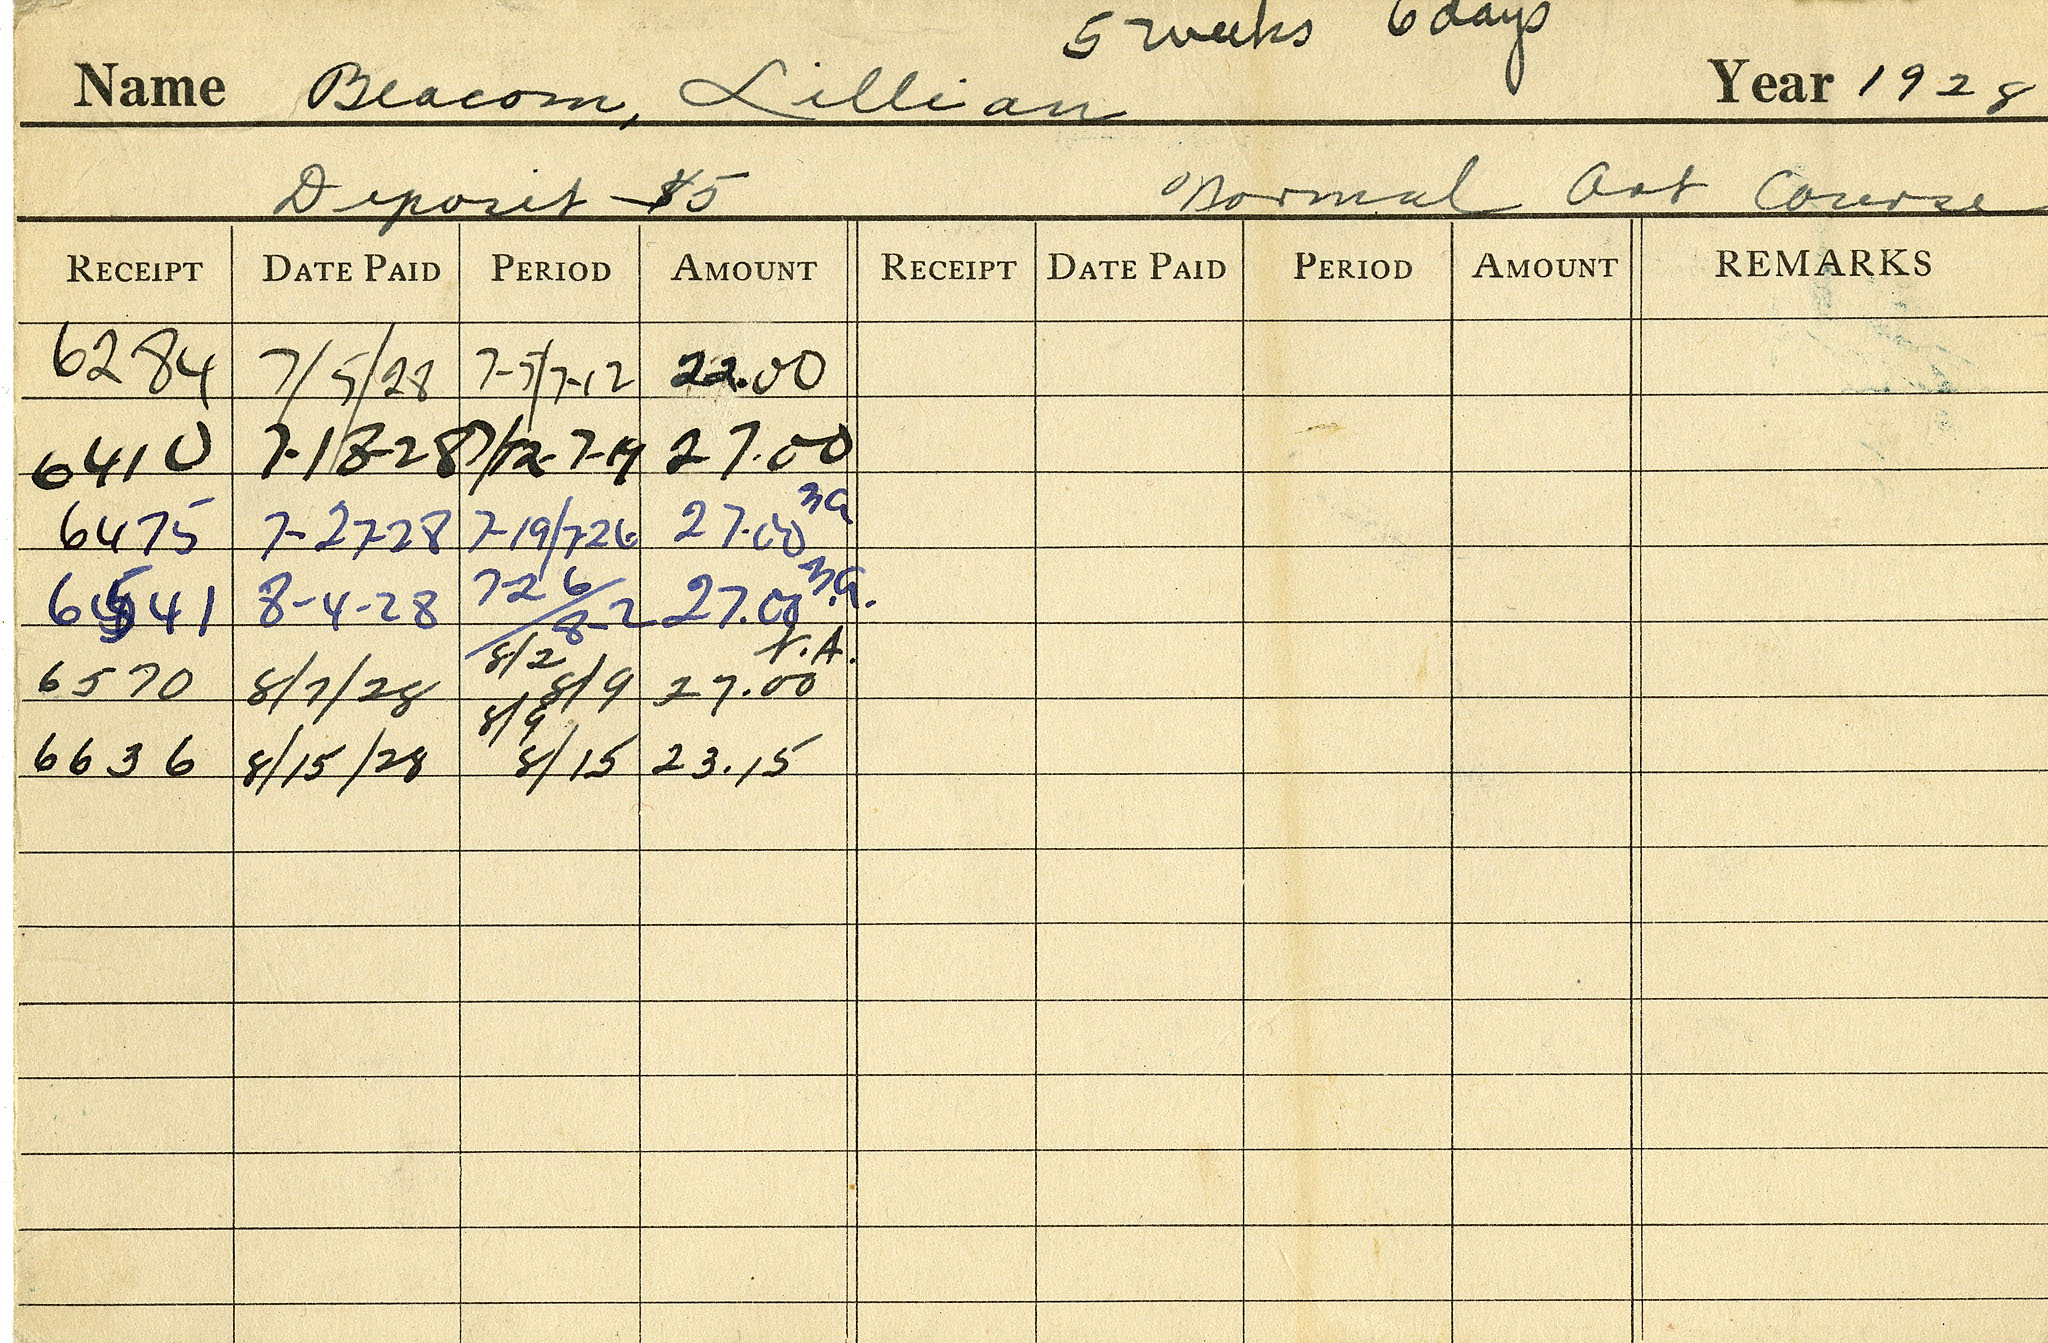 5 weeks 6 days
Name Beacom, Lillian Year 1928
Deposit - $5 Normal Art Course
RECEIPT DATE PAID PERIOD AMOUNT RECEIPT DATE PAID PERIOD AMOUNT REMARKS
6284 7/5/28 7-5/7-12 22.00
6410 7-18-28 7/12-7-19 27.00
6475 7-27-28 7-19/7-26 27.00
6541 8-4-28 7-26/8-2 27.00
6570 8/7/28 8/2 8/9 27.00
6636 8/15/28 8/9 8/15 23.15